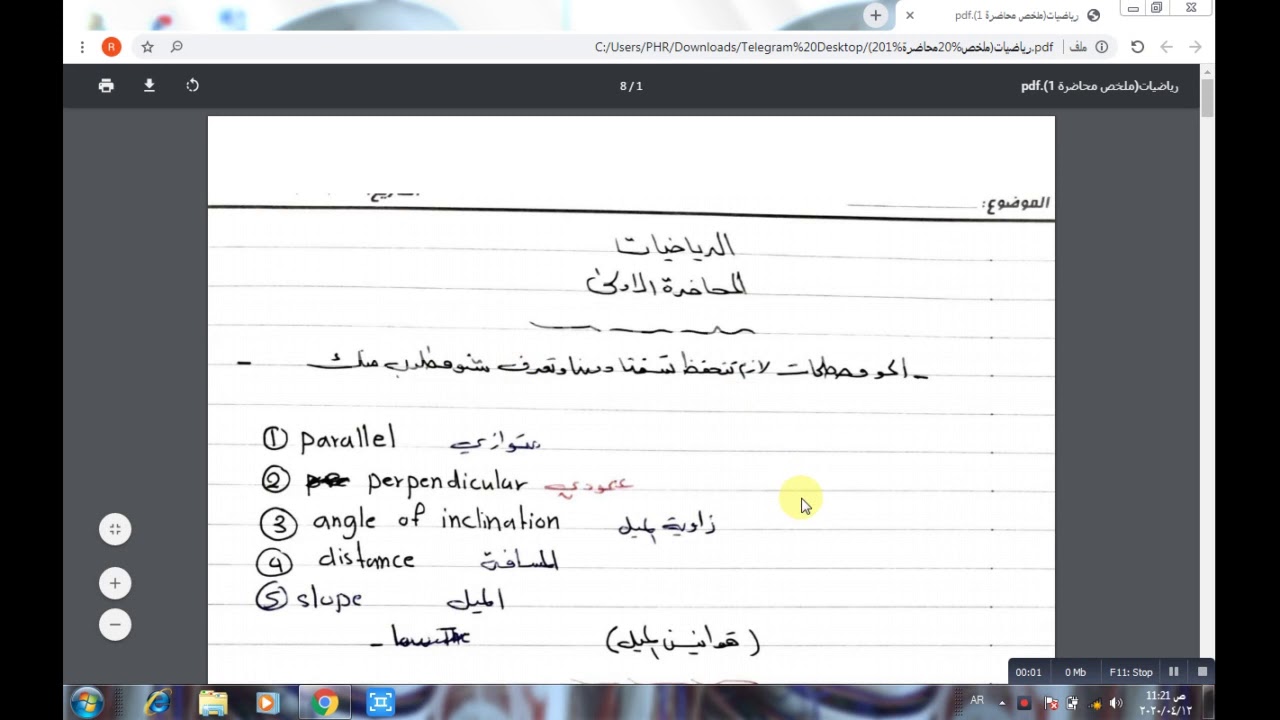 رياضيات(ملخص محاضرة 1).pdf
C:/Users/PHR/Downloads/Telegram%20Desktop/رياضيات(ملخص%20محاضرة%201).pdf
ملف
R
رياضيات(ملخص محاضرة 1).pdf
8 / 1
الموضوع:
الرياضيات
المحاضرة الأولى
لازم تنحفظ وتعرف شنو مطلوب منك
① parallel متوازي
② perpendicular عمودي
③ angle of inclination زاوية الميل
④ distance المسافة
⑤ slope الميل
(قوانين الميل)
00:01
0 Mb
F11: Stop
AR
11:21 ص
٢٠٢٠/٠٤/١٢